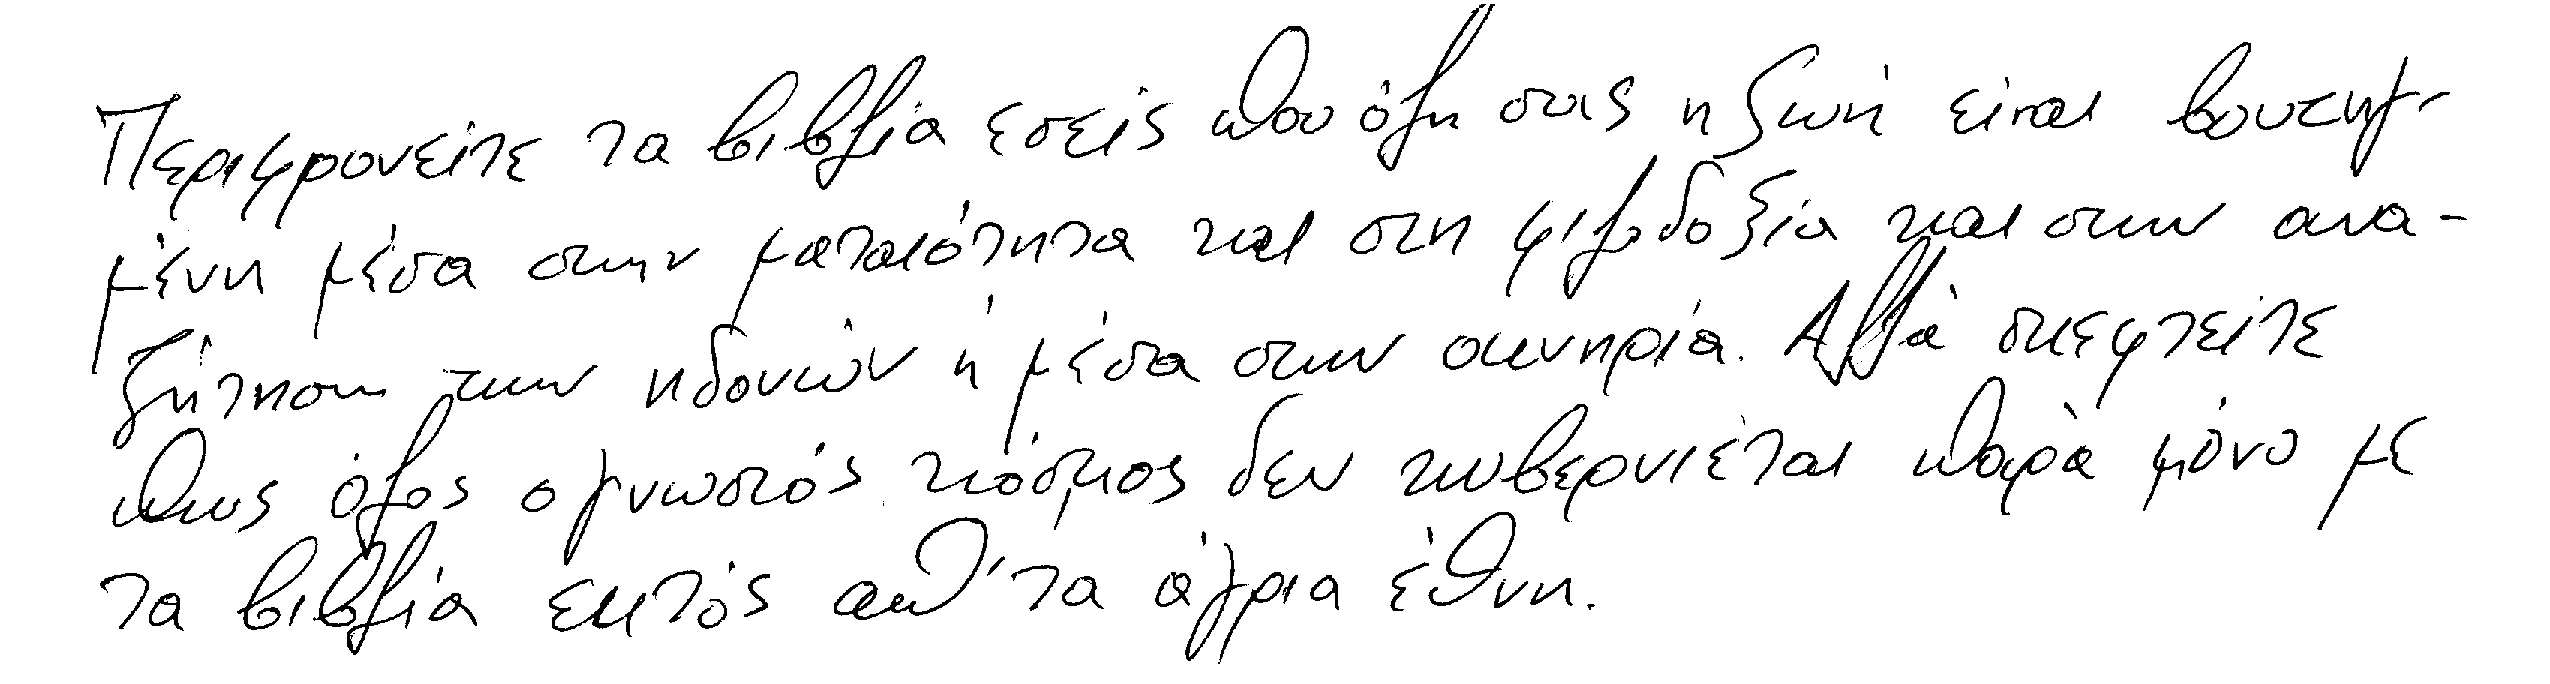 Περιφρονείτε τα βιβλία εσείς που όλη σας η ζωή είναι βουτηγ-
μένη μέσα στην ματαιότητα και στη φιλοδοξία και στην ανα-
ζήτηση των ηδονών ή μέσα στην οκνηρία. Αλλά σκεφτείτε
πως όλος ο γνωστός κόσμος δεν κυβερνιέται παρά μόνο με
τα βιβλία εκτός απ' τα άγρια έθνη.